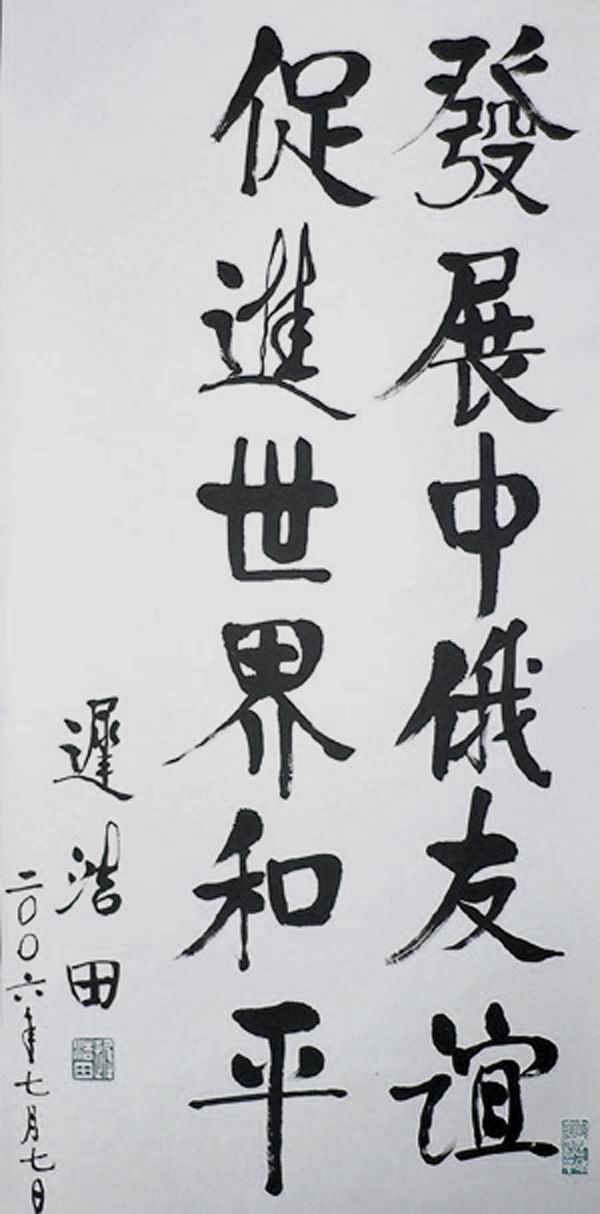 發展中俄友誼
促進世界和平
遲浩田
二〇〇六年七月七日